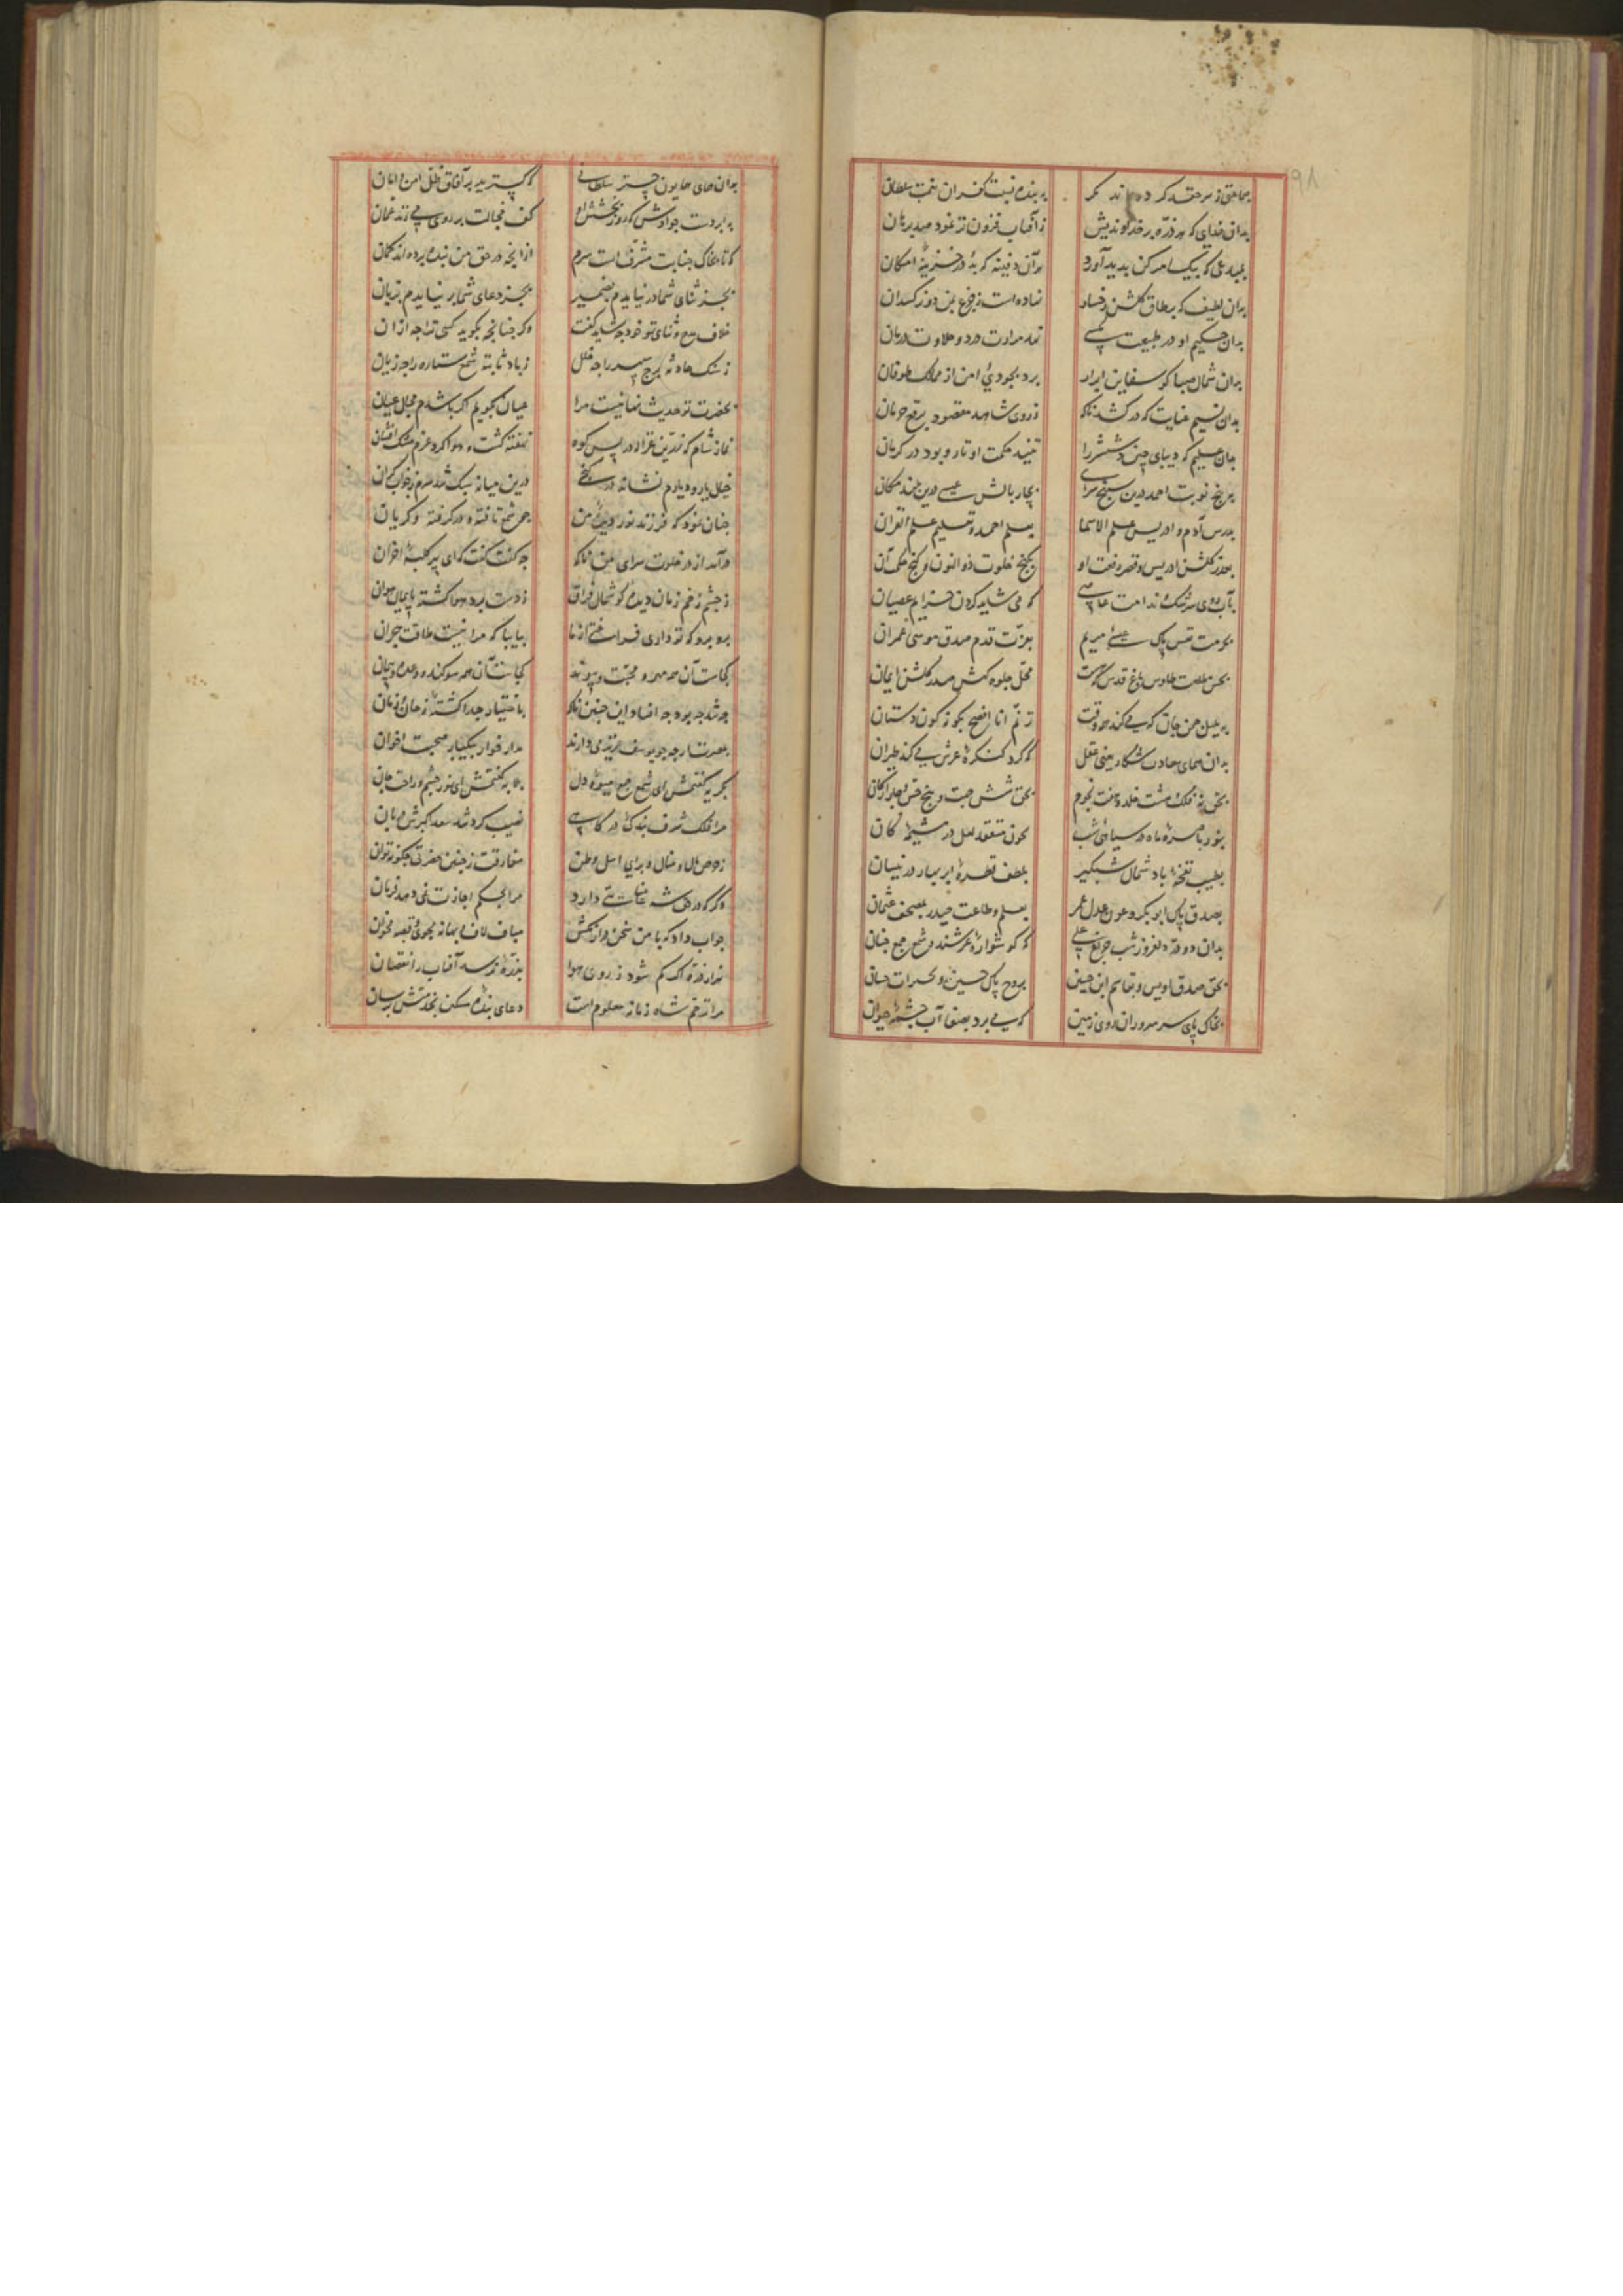 ۹۸
جماعتی ز سر حقد کرده اند مکر به بنده نسبت کفران نعمت سلطان
بدان خدای که هر ذره بر خداوندیش ز آفتاب فزون تر نمود صد برهان
که بیک امر کن بدید آورد هر آن دفینه که بد در خزینهٔ امکان
بدان لطیف که بر طاق کلشن نهاده است
بدان حکیم که او در طبیعت نهد مرارت درد و حلاوت درمان
بدان شمال صبا کو سفاین ابرار برد بجودی امن از مهالک طوفان
بدان نسیم عنایت که در کشد ناکاه ز روی شاهد مقصود برقع حرمان
بدان علیم که دیبای چینی و ششتر را تنید حکمت او تار و بود در کرمان
به پنج نوبت احمد درین سپنج سرای بچار بالش عیسی درین بلند مکان
بدرس آدم و ادریس و علم الاسما بعلم احمد و تعلیم علم القرآن
بصدر کلشن ادریس و قصر رفعت او بکنج خلوت ذوالنون و کنج حکمت آن
بآب روی سرشک ندامت عاصی که می شاید کردن عصیان
بحرمت نفس پاک عیسی مریم بعزت قدم صدق موسی عمران
بحسن طلعت طاوس باغ قدس که هست محل جلوه کهش صدر کلشن ایمان
به بلبل چمن جان که می کند هر وقت ترنم انا افصح بکونه کون دستان
بدان همای سعادت شکار یعنی عقل که کرد کنکرهٔ عرش می کند طیران
بحق نه فلک و هشت خلد و هفت نجوم بحق شش جهت و پنج حس و چار ارکان
بنور باصرهٔ ماه در سیاهی شب بخون منعقد لعل در مشیمهٔ کان
بطیب نفخهٔ باد شمال شبکیر بلطف قطرهٔ ابر بهار در نیسان
بصدق پاک ابو بکر و عدل عمر بعلم و طاعت حیدر بمصحف عثمان
بدان دو درّ دلفروز شب چراغ علی که کوشوارهٔ عرشند و شمع جمع جنان
بحق صدق اویس بروح پاک حسین
بخاک پای سر سروران روی زمین که می برد بصفا آب چشمهٔ حیوان
بدان همای همایون چتر سلطانی که کسترید بر آفاق ظل امن و امان
به ابر دست جوادش که روز بخشش او کف خجالت بر روی می زند عمان
که تا بخاک جنابت مشرف است سرم از آنچه در حق من بنده برده اند کمان
بجز ثنای شما در نیایدم بضمیر بجز دعای شما بر نیایدم بزبان
خلاف مدح و ثنای تو خود چه شاید کفت وکر چنانچه بکوید کسی ترا چه ازان
ز سنک حادثه برج سپهر را چه خلل ز باد ثابته شمع ستاره را چه زیان
بحضرت تو حدیث نهانیست مرا عیان بکویم اکر باشدم مجال عیان
نماز شام که زرین غزاله در پس کوه نهفته کشت و هوا کرد عزم مشک افشان
خیال یار و دیارم نشانده در کنجی درین میانه سبک شد سرم ز خواب کران
چنان نمود که فرزند نور دیدهٔ من چو شمع تافته و در کرفته و کریان
درآمد از در خلوت سرای من ناکاه چه کفت کفت که ای پیر کلبهٔ احزان
ز چشم زخم زمان دیده کوشمال فراق ز دست برد هوا کشته پایمال هوان
برو برو که تو داری فراغتی از ما بیا بیا که مرا نیست طاقت هجران
کجاست آن همه مهر و محبت و پیوند کجاست آن همه سوکند و وعده و پیمان
چه شد چه بود چه افتاد این چنین ناکاه باختیار جدا کشتهٔ ز خان و مان
بمصر ار چه چو یوسف عزیز می دارند مدار خوار بیکبار صحبت اخوان
بکریه کفتمش ای شمع جمع و میوهٔ دل بلابه کفتمش ای نور چشم و راحت جان
مرا فلک شرف بندکی درکاهی نصیب کرد که شد سعد اکبرش دربان
ز حرص مال و منال و برای اهل و وطن مفارقت ز چنین حضرتی چکونه توان
وکر که در حق شه عنایتی دارد مرا بحکم اجازت نمی دهد فرمان
جواب داد که با من سخن دراز مکش مباف لاف و بهانه مجوی و قصه مخوان
هزار ذره اکر کم شود ز روی هوا بذرهٔ نرسد آفتاب را نقصان
مرا ترحم شاه زمانه معلوم است دعای بندهٔ مسکین بخدمتش برسان